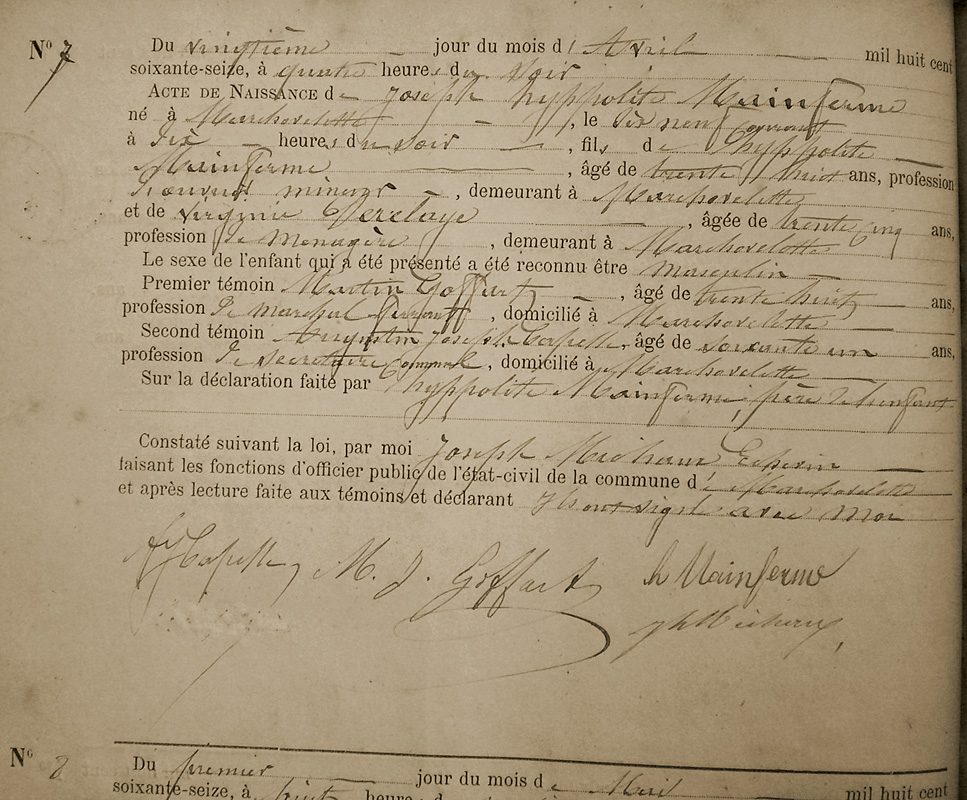 N° 7 Du vingtième jour du mois d'Avril mil huit cent
soixante-seize, à quatre heures du soir
ACTE DE NAISSANCE de Joseph hyppolite Mainferme
né à Marchovelette, le dix neuf courant
à dix heures du soir, fils de hyppolite
Mainferme, âgé de trente huit ans, profession
d'ouvrier mineur, demeurant à Marchovelette
et de virginie, âgée de trente cinq ans,
profession de Menagère, demeurant à Marchovelette
Le sexe de l'enfant qui a été présenté a été reconnu être masculin
Premier témoin Martin Goffart, âgé de trente huit ans,
profession de marechal ferrant, domicilié à Marchovelette
Second témoin Augustin Joseph Capelle, âgé de soixante un ans,
profession de secretaire Communal, domicilié à Marchovelette
Sur la déclaration faite par hyppolite Mainferme, père de l'enfant
Constaté suivant la loi, par moi Joseph Michaux Echevin
faisant les fonctions d'officier public de l'état-civil de la commune de Marchovelette
et après lecture faite aux témoins et déclarant Ils ont signé avec moi
AJ Capelle M. J. Goffart h Mainferme
Jh Michaux
N° 8 Du premier jour du mois de Mai mil huit cent
soixante-seize, à huit heures d